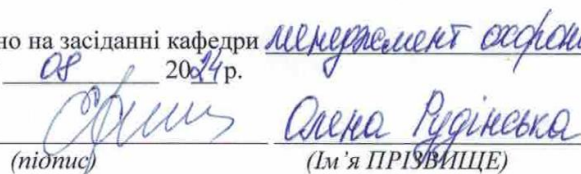 но на засіданні кафедри менеджмент охорони
08 2024 р.
Олена Рудінська
(підпис) (Ім’я ПРІЗВИЩЕ)